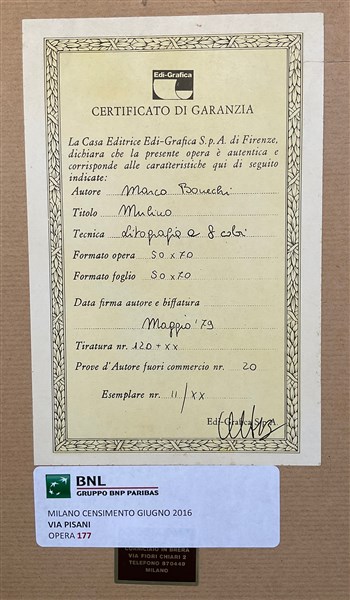 Edi-Grafica
CERTIFICATO DI GARANZIA
La Casa Editrice Edi-Grafica S.p.A. di Firenze,
dichiara che la presente opera è autentica e
corrisponde alle caratteristiche qui di seguito
indicate:
Autore Marco Bonechi
Titolo Mulino
Tecnica Litografia a 8 colori
Formato opera 50 x 70
Formato foglio 50 x 70
Data firma autore e biffatura
Maggio '79
Tiratura nr. 120 + XX
Prove d'Autore fuori commercio nr. 20
Esemplare nr. 11/XX
Edi-Grafica S.p.A.
BNL
GRUPPO BNP PARIBAS
MILANO CENSIMENTO GIUGNO 2016
VIA PISANI
OPERA 177
CORNICIAIO IN BRERA
VIA FIORI CHIARI 2
TELEFONO 870449
MILANO